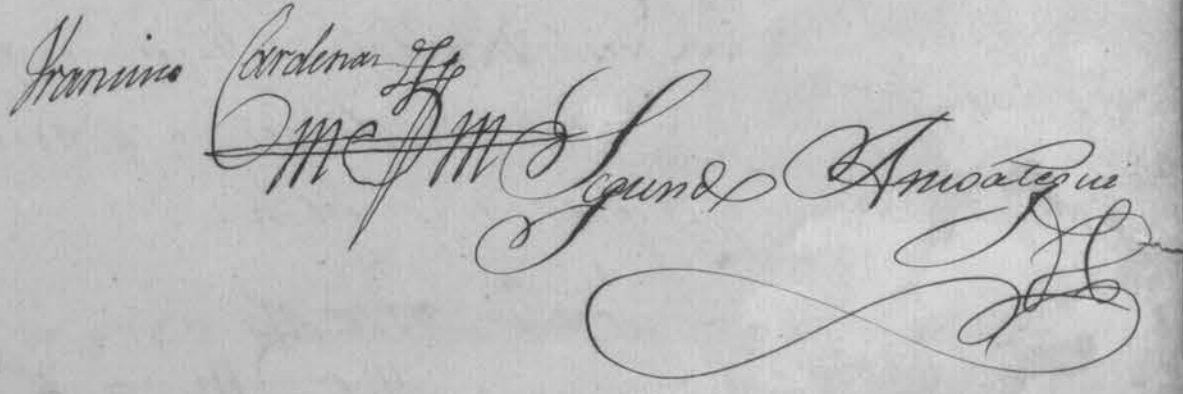 Francisco Cardenas
Segundo Amoategui